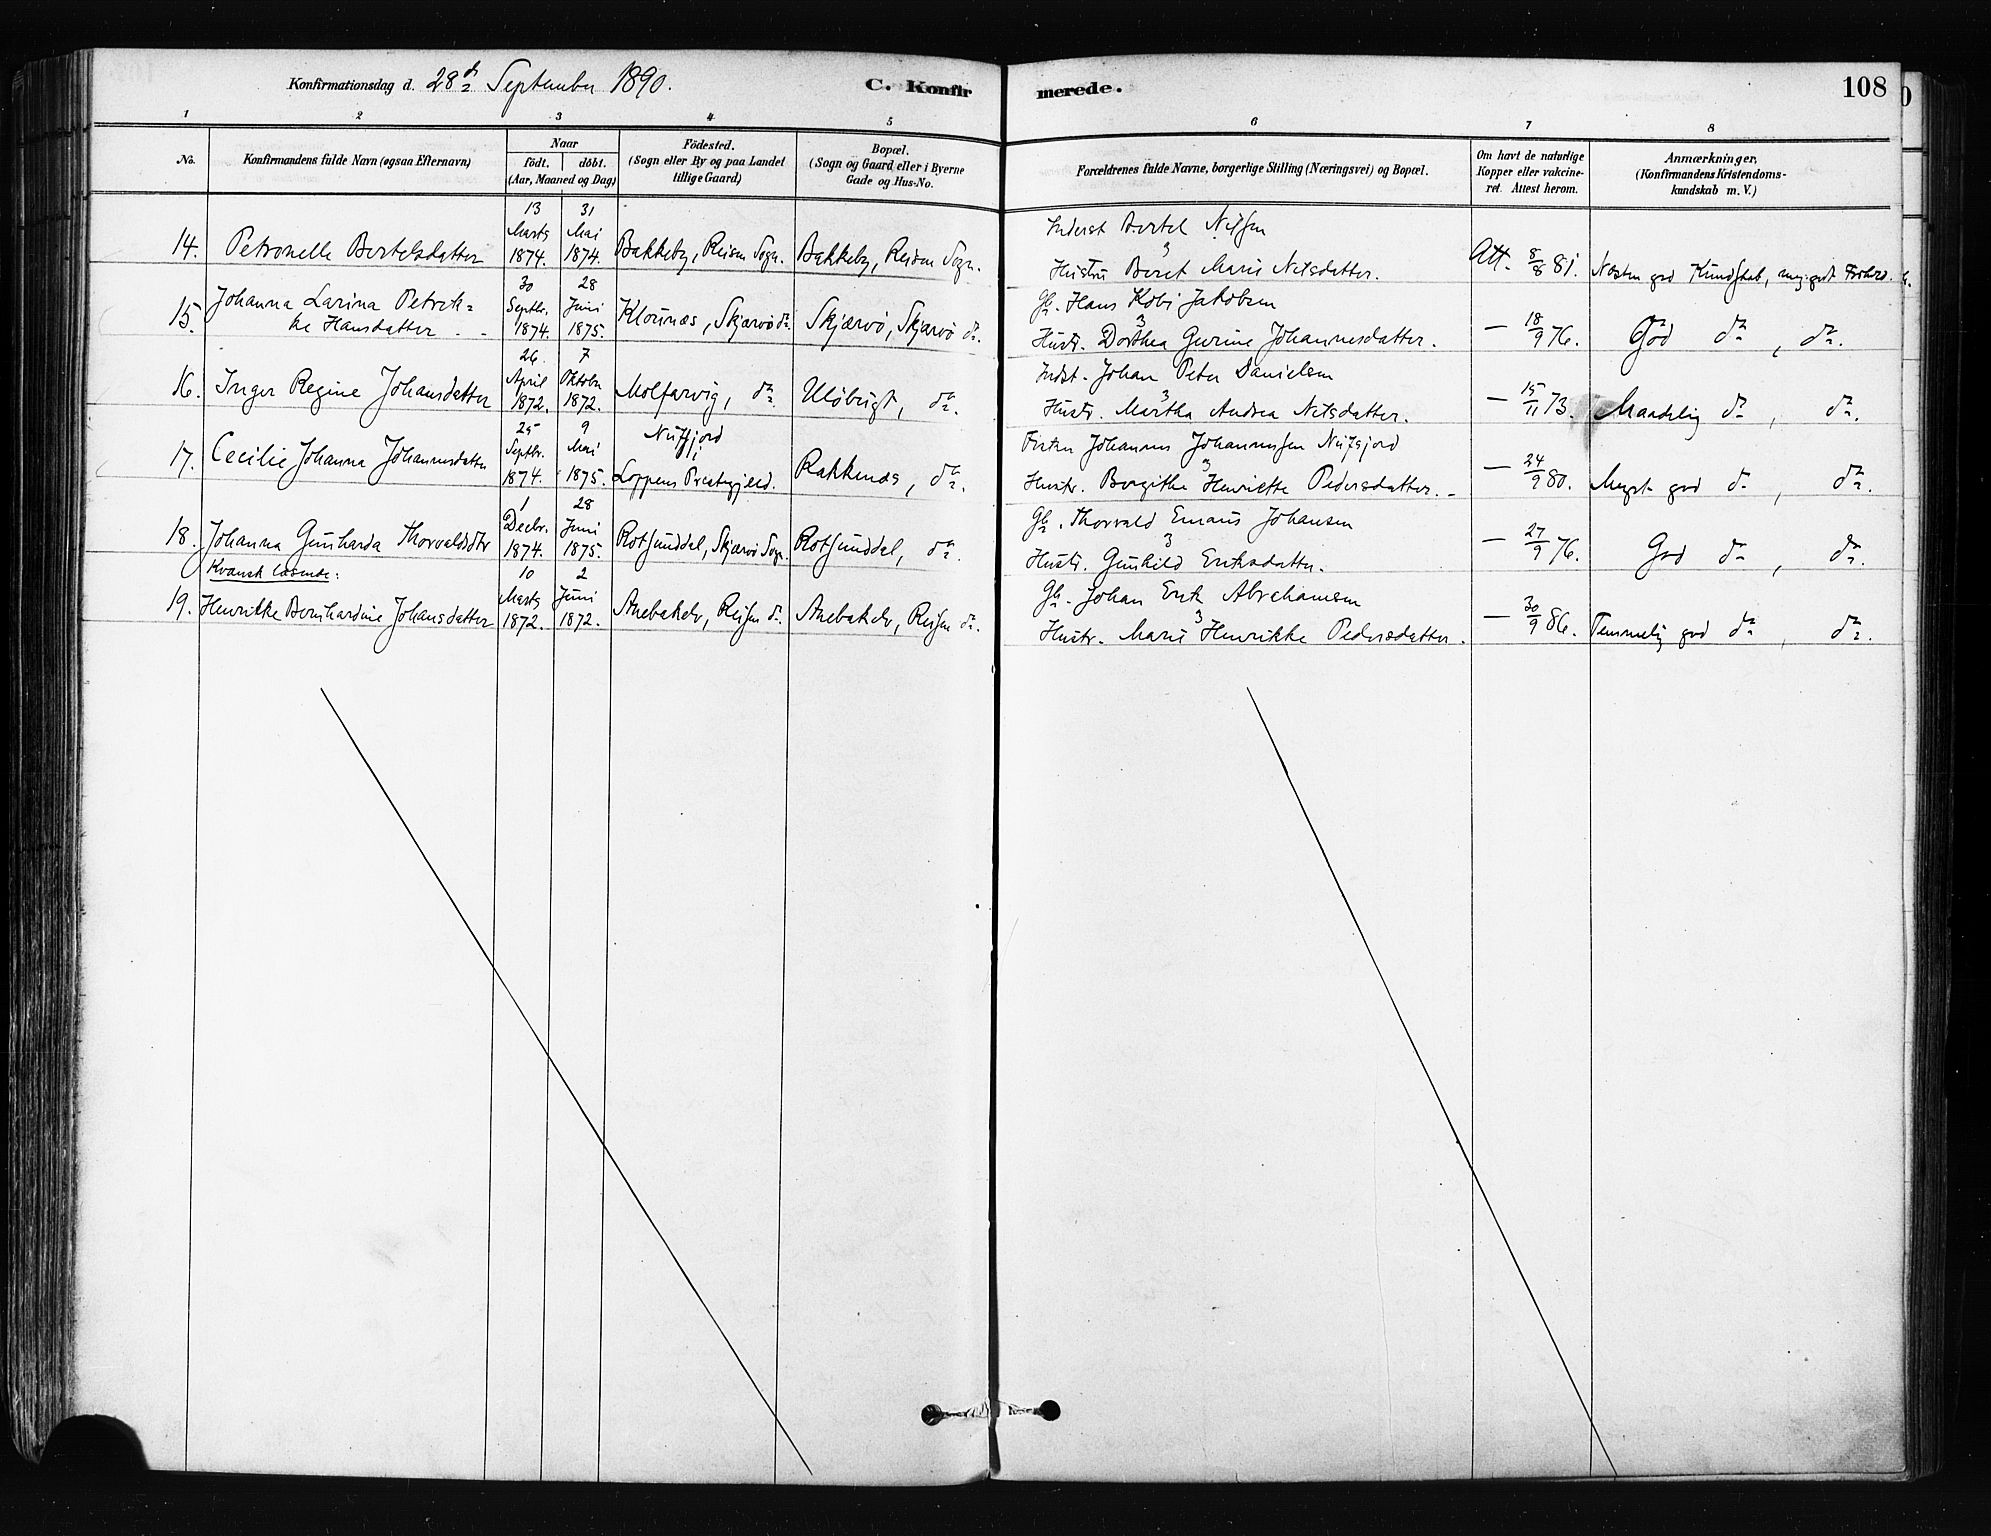 Konfirmationsdag d. 28de September 1890.
C. Konfirmerede.
108
1 2 3 4 5 6 7 8
No.
Konfirmandens fulde Navn (ogsaa Efternavn)
Naar
födt. döbt.
(Aar, Maaned og Dag)
Födested.
(Sogn eller By og paa Landet
tillige Gaard)
Bopæl.
(Sogn og Gaard eller i Byerne
Gade og Hus-No.
Forældrenes fulde Navne, borgerlige Stilling (Næringsvei) og Bopæl.
Om havt de naturlige
Kopper eller vakcine-
ret. Attest herom.
Anmærkninger,
(Konfirmandens Kristendoms-
kundskab m. V.)
14. Petronelle Bertelsdatter
13 Marts 1874. 31 Mai 1874.
Bakkeby, Reisen Sogn. Bakkeby, Reisen Sogn.
Inderst Bertel Nilsen
Hustru Beret Maris Nilsdatter.
Att. 8/8 81. Næsten god Kundskab, meg. godt Forhold.
15. Johanna Larina Petrek=
ke Hansdatter
30 Septbr. 1874. 28 Juni 1875.
Klounæs, Skjærvö do. Skjærvö, Skjærvö do.
Gb. Hans Kobi Jakobsen
Hustr. Dorthea Gurine Johannesdatter.
— 18/9 76. God do, do.
16. Inger Regine Johansdatter
26. April 1872. 7 Oktobr 1872.
Molfarvig, do. Ulöbugt, do.
Indst. Johan Peter Danielsen
Hustr. Martha Andrea Nilsdatter.
— 15/11 73. Maadelig do, do.
17. Cecilie Johanna Johannesdatter
25 Septbr. 1874. 9 Mai 1875.
Nuffjord
Loppens Prestegjeld. Rakkenæs, do.
Johannes Johannessen Nufsjord
Hustr. Borgithe Henriette Pedersdatter.
— 24/9 80. Meget god do, do.
18. Johanna Gunharda Thorvaldsdtr
1 Decbr. 1874. 28 Juni 1875.
Rotsunddal, Skjærvö Sogn. Rotsunddal, do.
Gb. Thorvald Emaus Johansen
Hustr. Gunhild Eriksdatter.
— 27/9 76. God do, do.
Kvænsk læsende:
19. Henrikke Bernhardine Johansdatter
10 Marts 1872. 2 Juni 1872.
Anebakelv, Reisen do. Anebakelv, Reisen do.
Gb. Johan Erik Abrahamsen
Hustr. Maris Henrikke Pedersdatter.
— 30/9 86. Temmelig god do, do.